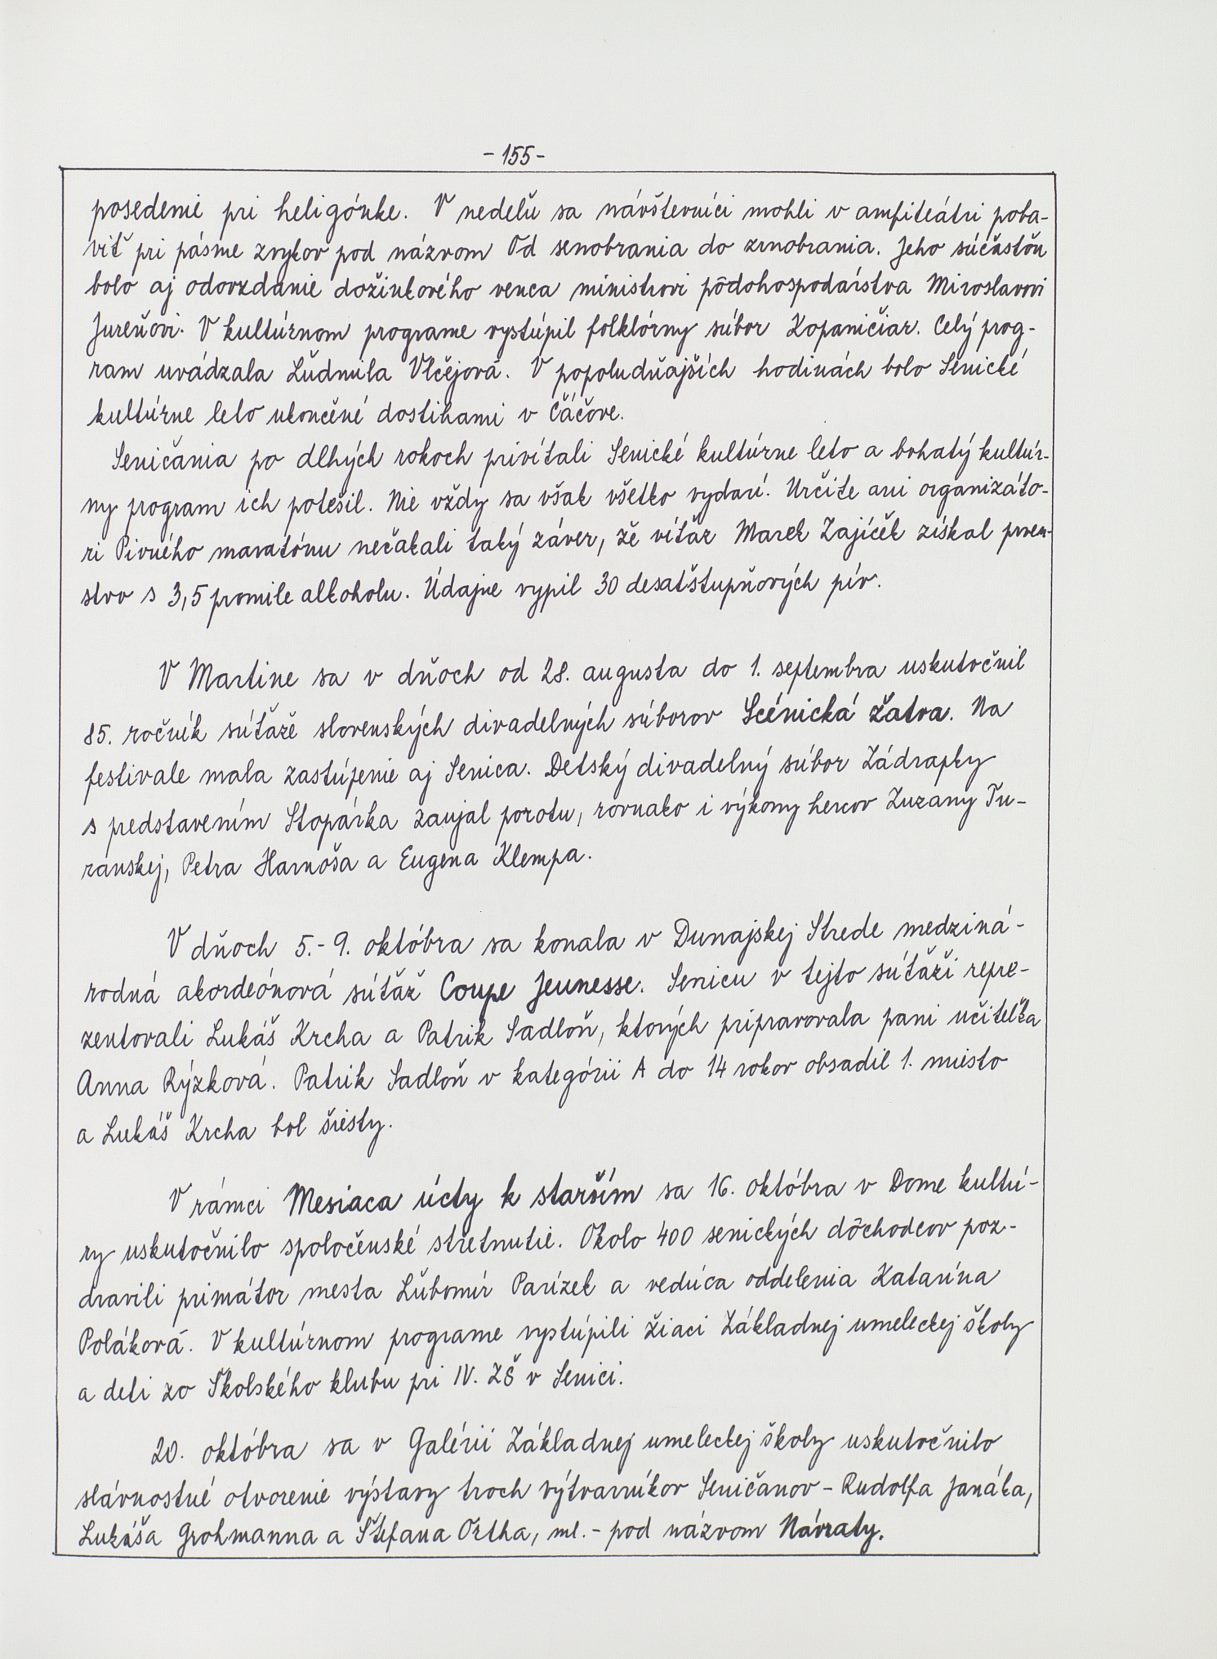 - 155 -
posedenie pri heligónke. V nedeľu sa návštevníci mohli v amfiteátri poba-
viť pri pásme zvykov pod názvom Od senobrania do zrnobrania. Jeho súčasťou
bolo aj odovzdanie dožinkového venca ministrovi pôdohospodárstva Miroslavovi
Jureňovi. V kultúrnom programe vystúpil folklórny súbor Kopaničiar. Celý prog-
ram uvádzala Ľudmila Vlčejová. V popoludňajších hodinách bolo Senické
kultúrne leto ukončené dostihami v Čáčove.
Seničania po dlhých rokoch privítali Senické kultúrne leto a bohatý kultúr-
ny program ich potešil. Nie vždy sa však všetko vydarí. Určite ani organizáto-
ri Pivného maratónu nečakali taký záver, že víťaz Marek Zajíček získal prven-
stvo s 3,5 promile alkoholu. Údajne vypil 30 desaťstupňových pív.
V Martine sa v dňoch od 28. augusta do 1. septembra uskutočnil
85. ročník súťaže slovenských divadelných súborov Scénická žatva. Na
festivale mala zastúpenie aj Senica. Detský divadelný súbor Zádrapky
s predstavením Stopárka zaujal porotu, rovnako i výkony hercov Zuzany Tu-
ranskej, Petra Harnoša a Eugena Klempa.
V dňoch 5.-9. októbra sa konala v Dunajskej Strede medziná-
rodná akordeónová súťaž Coupe Jeunesse. Senicu v tejto súťaži repre-
zentovali Lukáš Krcha a Patrik Sadloň, ktorých pripravovala pani učiteľka
Anna Rýzková. Patrik Sadloň v kategórii A do 14 rokov obsadil 1. miesto
a Lukáš Krcha bol šiesty.
V rámci Mesiaca úcty k starším sa 16. októbra v Dome kultú-
ry uskutočnilo spoločenské stretnutie. Okolo 400 senických dôchodcov poz-
dravili primátor mesta Ľubomír Parízek a vedúca oddelenia Katarína
Poláková. V kultúrnom programe vystúpili žiaci Základnej umeleckej školy
a deti zo Školského klubu pri IV. ZŠ v Senici.
20. októbra sa v Galérii Základnej umeleckej školy uskutočnilo
slávnostné otvorenie výstavy troch výtvarníkov Seničanov - Rudolfa Janáka,
Lukáša Grohmanna a Štefana Ortha, ml. - pod názvom Návraty.